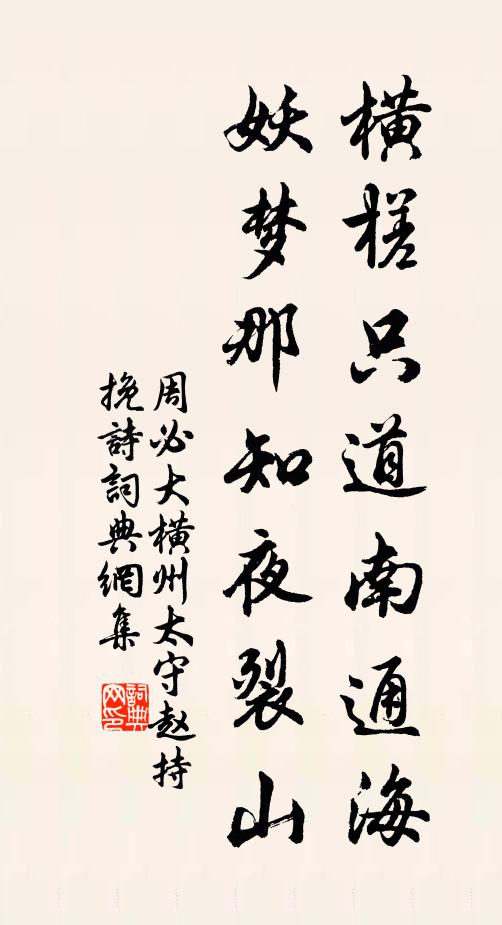 横槎只道南通海
妖梦那知夜裂山
周必大横州太守赵持
挽詩詞典網集
詞典
网印